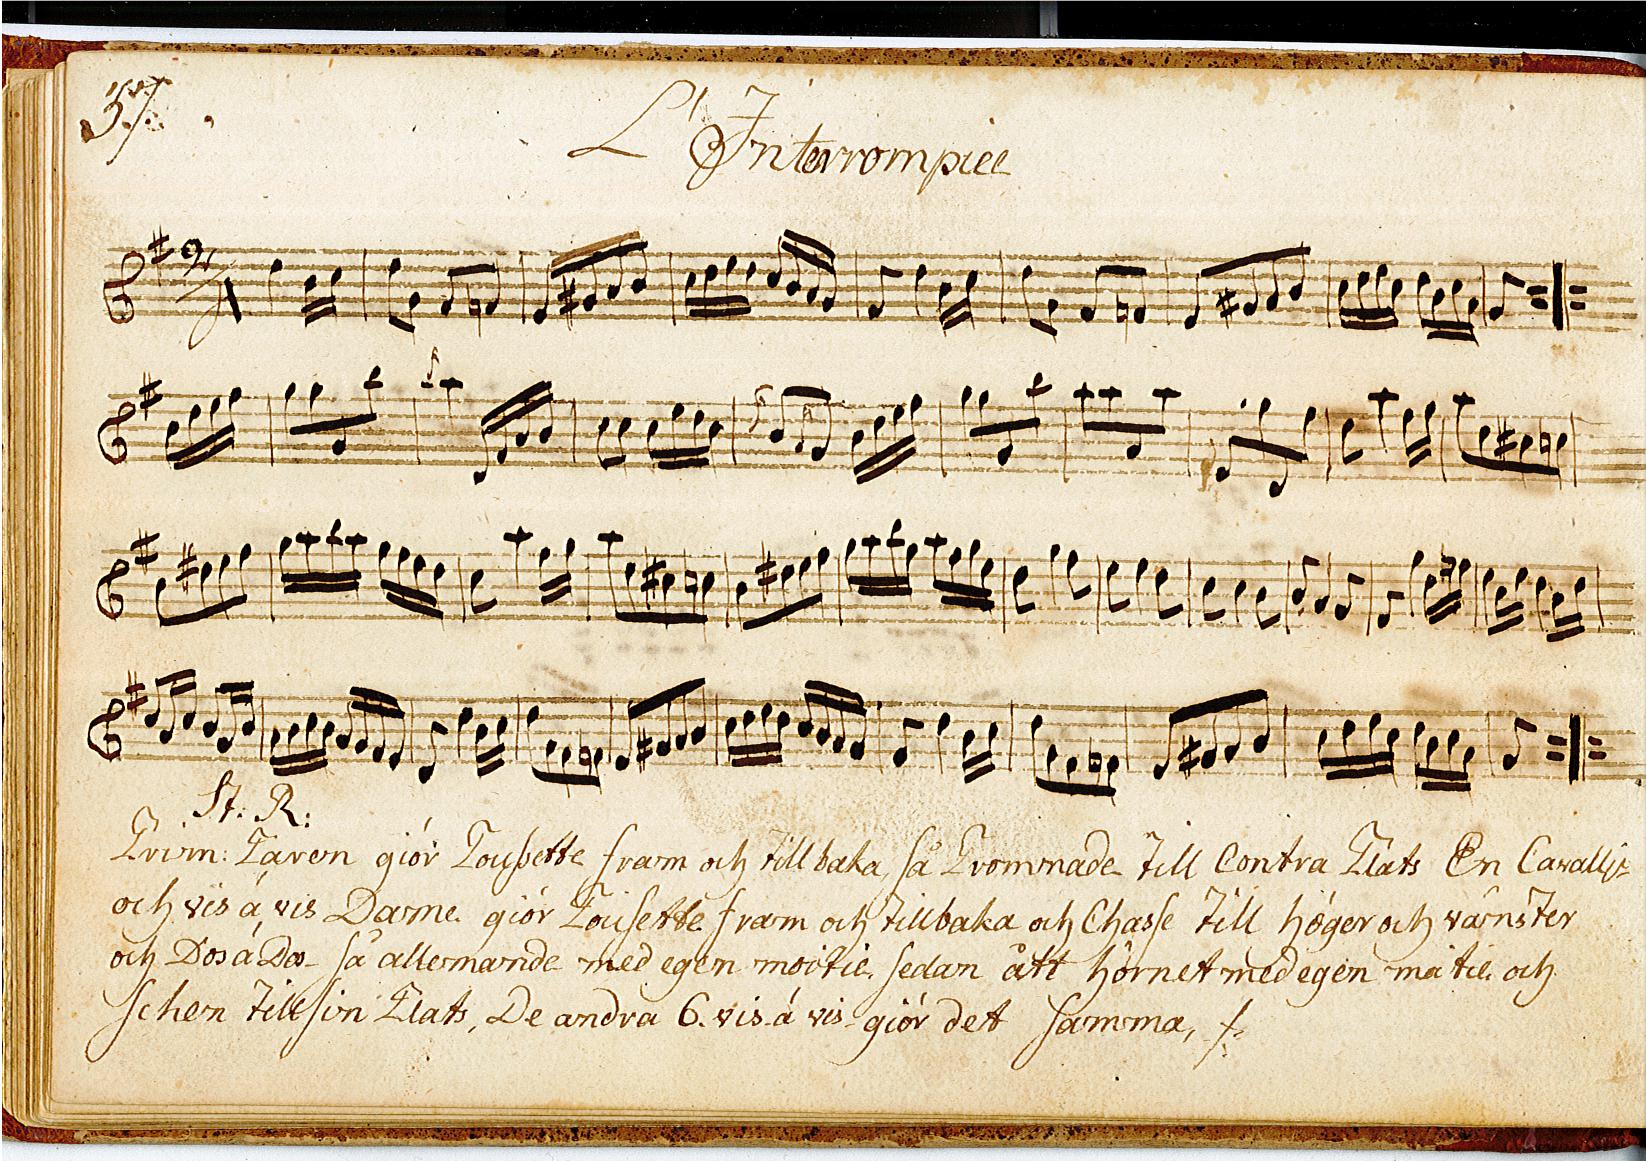 37.
L'Interrompiee
St. R:
Prim: Paren giör Pousette fram och tillbaka, så Prommade till Contra Plats En Cavallj:
och vis á vis Dame giör Pousette fram och tillbaka och Chasse till höger och vänster
och Dos á Dos så allemande med egen moitie sedan ått hörnet med egen moitie och
Schen till sin Plats, De andra 6. vis á vis giör det samma,